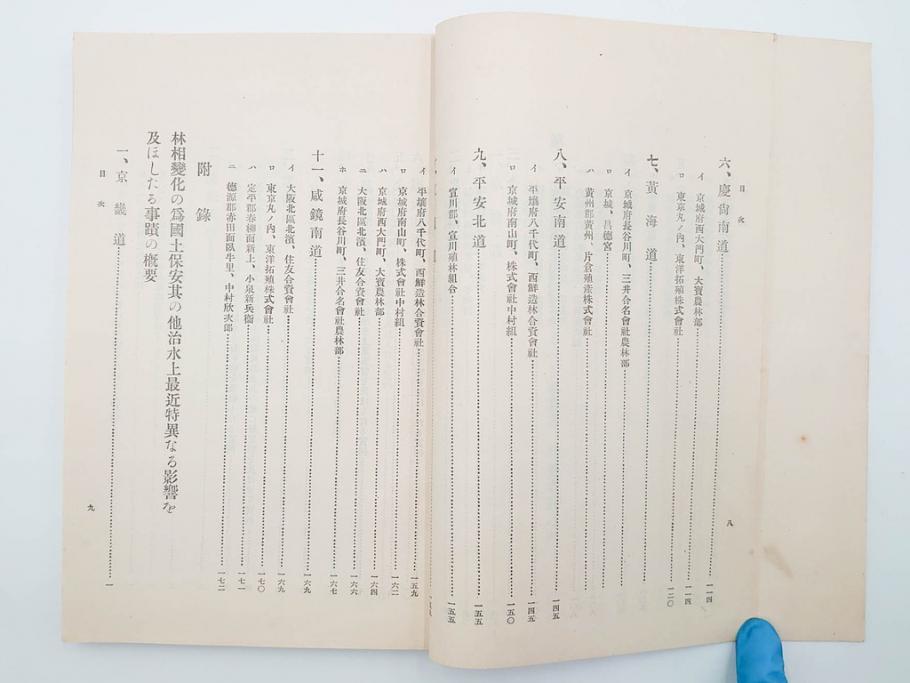 目次
六、慶尙南道 一一四
イ 京城府西大門町、大寶農林部 一一四
ロ 東京丸ノ內、東洋拓殖株式會社 一二〇
七、黃海道
イ 京城府長谷川町、三井合名會社農林部
ロ 京城、昌德宮
ハ 黃州郡黃州、片倉殖産株式會社
八、平安南道 一四五
イ 平壤府八千代町、西鮮造林合資會社 一四五
ロ 京城府南山町、株式會社中村組 一五〇
九、平安北道 一五五
イ 宣川郡、宣川殖林組合 一五五
八
イ 平壤府八千代町、西鮮造林合資會社 一五九
ロ 京城府南山町、株式會社中村組 一六二
ハ 京城府西大門町、大寶農林部 一六四
ニ 大阪北區北濱、住友合資會社 一六六
ホ 京城府長谷川町、三井合名會社農林部 一六七
十一、咸鏡南道 一六九
イ 大阪北區北濱、住友合資會社 一六九
ロ 東京丸ノ內、東洋拓殖株式會社 一七〇
ハ 定平郡春柳面新上、小泉新兵衞 一七一
ニ 德源郡赤田面臥牛里、中村欣次郞 一七二
附錄
林相變化の爲國土保安其の他治水上最近特異なる影響を
及ほしたる事蹟の槪要
一、京畿道 一
目次
九